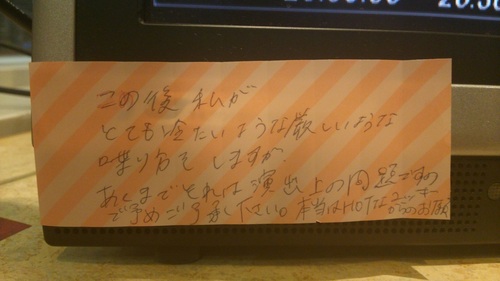 この後 私が
とても冷たいような厳しいような
喋り方をしますが、
あくまでそれは演出上の問題ですの
で予めご了承下さい。本当はHOTな
のお願